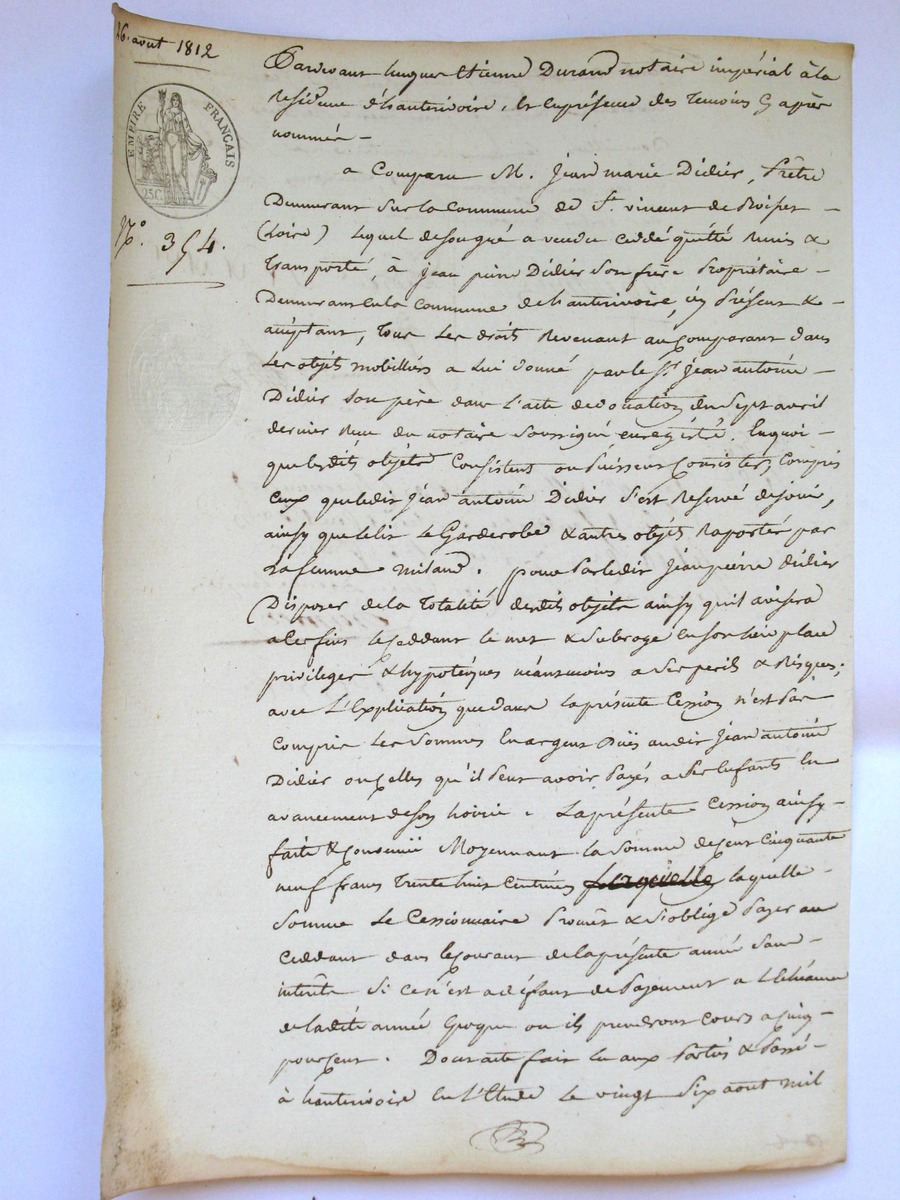 26. aout 1812
EMPIRE FRANÇAIS
25C.
N.° 354.
Pardevant hugues Etienne Durand notaire impérial à la
Residence d'hauterivoire, & en présence des Temoins cy après
nommés –
a Comparu M. Jean marie Didier, Prêtre
Demeurant sur la Commune de St. vincent de Boisset
(Loire) Lequel de son gré a vendu cedé quitté Remis &
Transporté, à jean pierre Didier son frère Propriétaire –
Demeurant en la Commune de hauterivoire, icy Présent & –
acceptant, Tous Les droits Revenant au Comparant dans
Les objets mobilliers a Lui donné par le Sr. Jean antoine –
Didier son père dans L'acte de donation du Sept avril
dernier Reçu du notaire soussigné enregistré. En quoi –
que lesdits objets Consistent ou Puissent Consister, Compris
Ceux que ledit Jean antoine Didier s'est Reservé de jouir,
ainsy que le lit Le Garderobe & autres objets Raportés par
La femme miland. pour Par ledit Jean pierre didier
Disposer de la Totalité desdits objets ainsy qu'il avisera
a Ces fins le Ceddant le met & Subroge en son lieu place
privileges & hypoteques néanmoins a Ses perils & Risques;
avec L'Explication que dans la présente Cession n'est Pas
Compris Les Sommes En argent Dües audit Jean antoine
Didier ou Celles qu'il Peut avoir Payés a Ses Enfants En
avancement de son hoirie. La présente Cession ainsy –
faite & Consentie Moyennant la Somme de Cent Cinquante
neuf francs Trente huit Centimes laquelle –
Somme Le Cessionnaire Promet & s'oblige Payer au
Ceddant dans le Courant de la présente année Sans –
interêts Si ce n'est a défaut de Payement a L'Echéance
de ladite année Epoque ou ils prendront Cours a Cinq –
pour Cent. Dont acte fait lu aux Parties & Passé –
à hauterivoire En L'Etude Le vingt Six aout mil